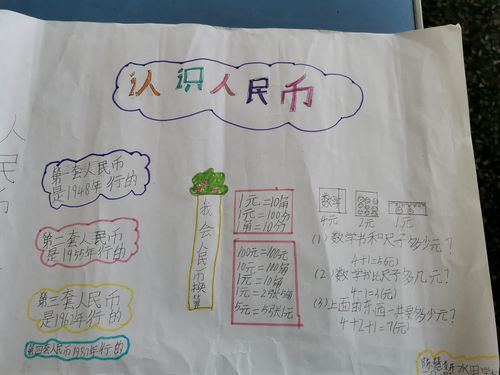 认识人民币
第一套人民币
是1948年行的
第二套人民币
是1955年行的
第三套人民币
是1962年行的
第四套人民币1987年行的
我会人民币换算
1元=10角
1元=100分
1角=10分
100元=100元
10元=110角
1元=10角
1元=2张5角
5元=5张1元
数学
4元 2元 1元
(1)数学书和尺子多少元?
4+1=5(元)
(2)数学书比尺子多几元?
4-1=3(元)
(3)上面的东西一共要多少元?
4+2+1=7(元)